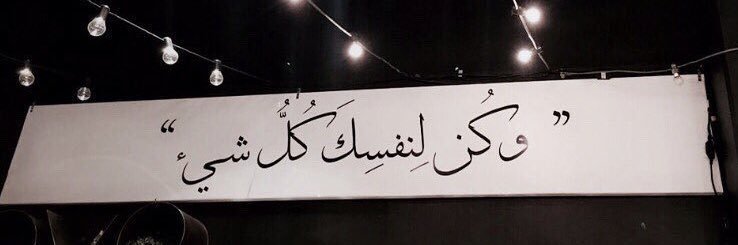 ” وكُن لِنفسِكَ كُلُّ شيء “